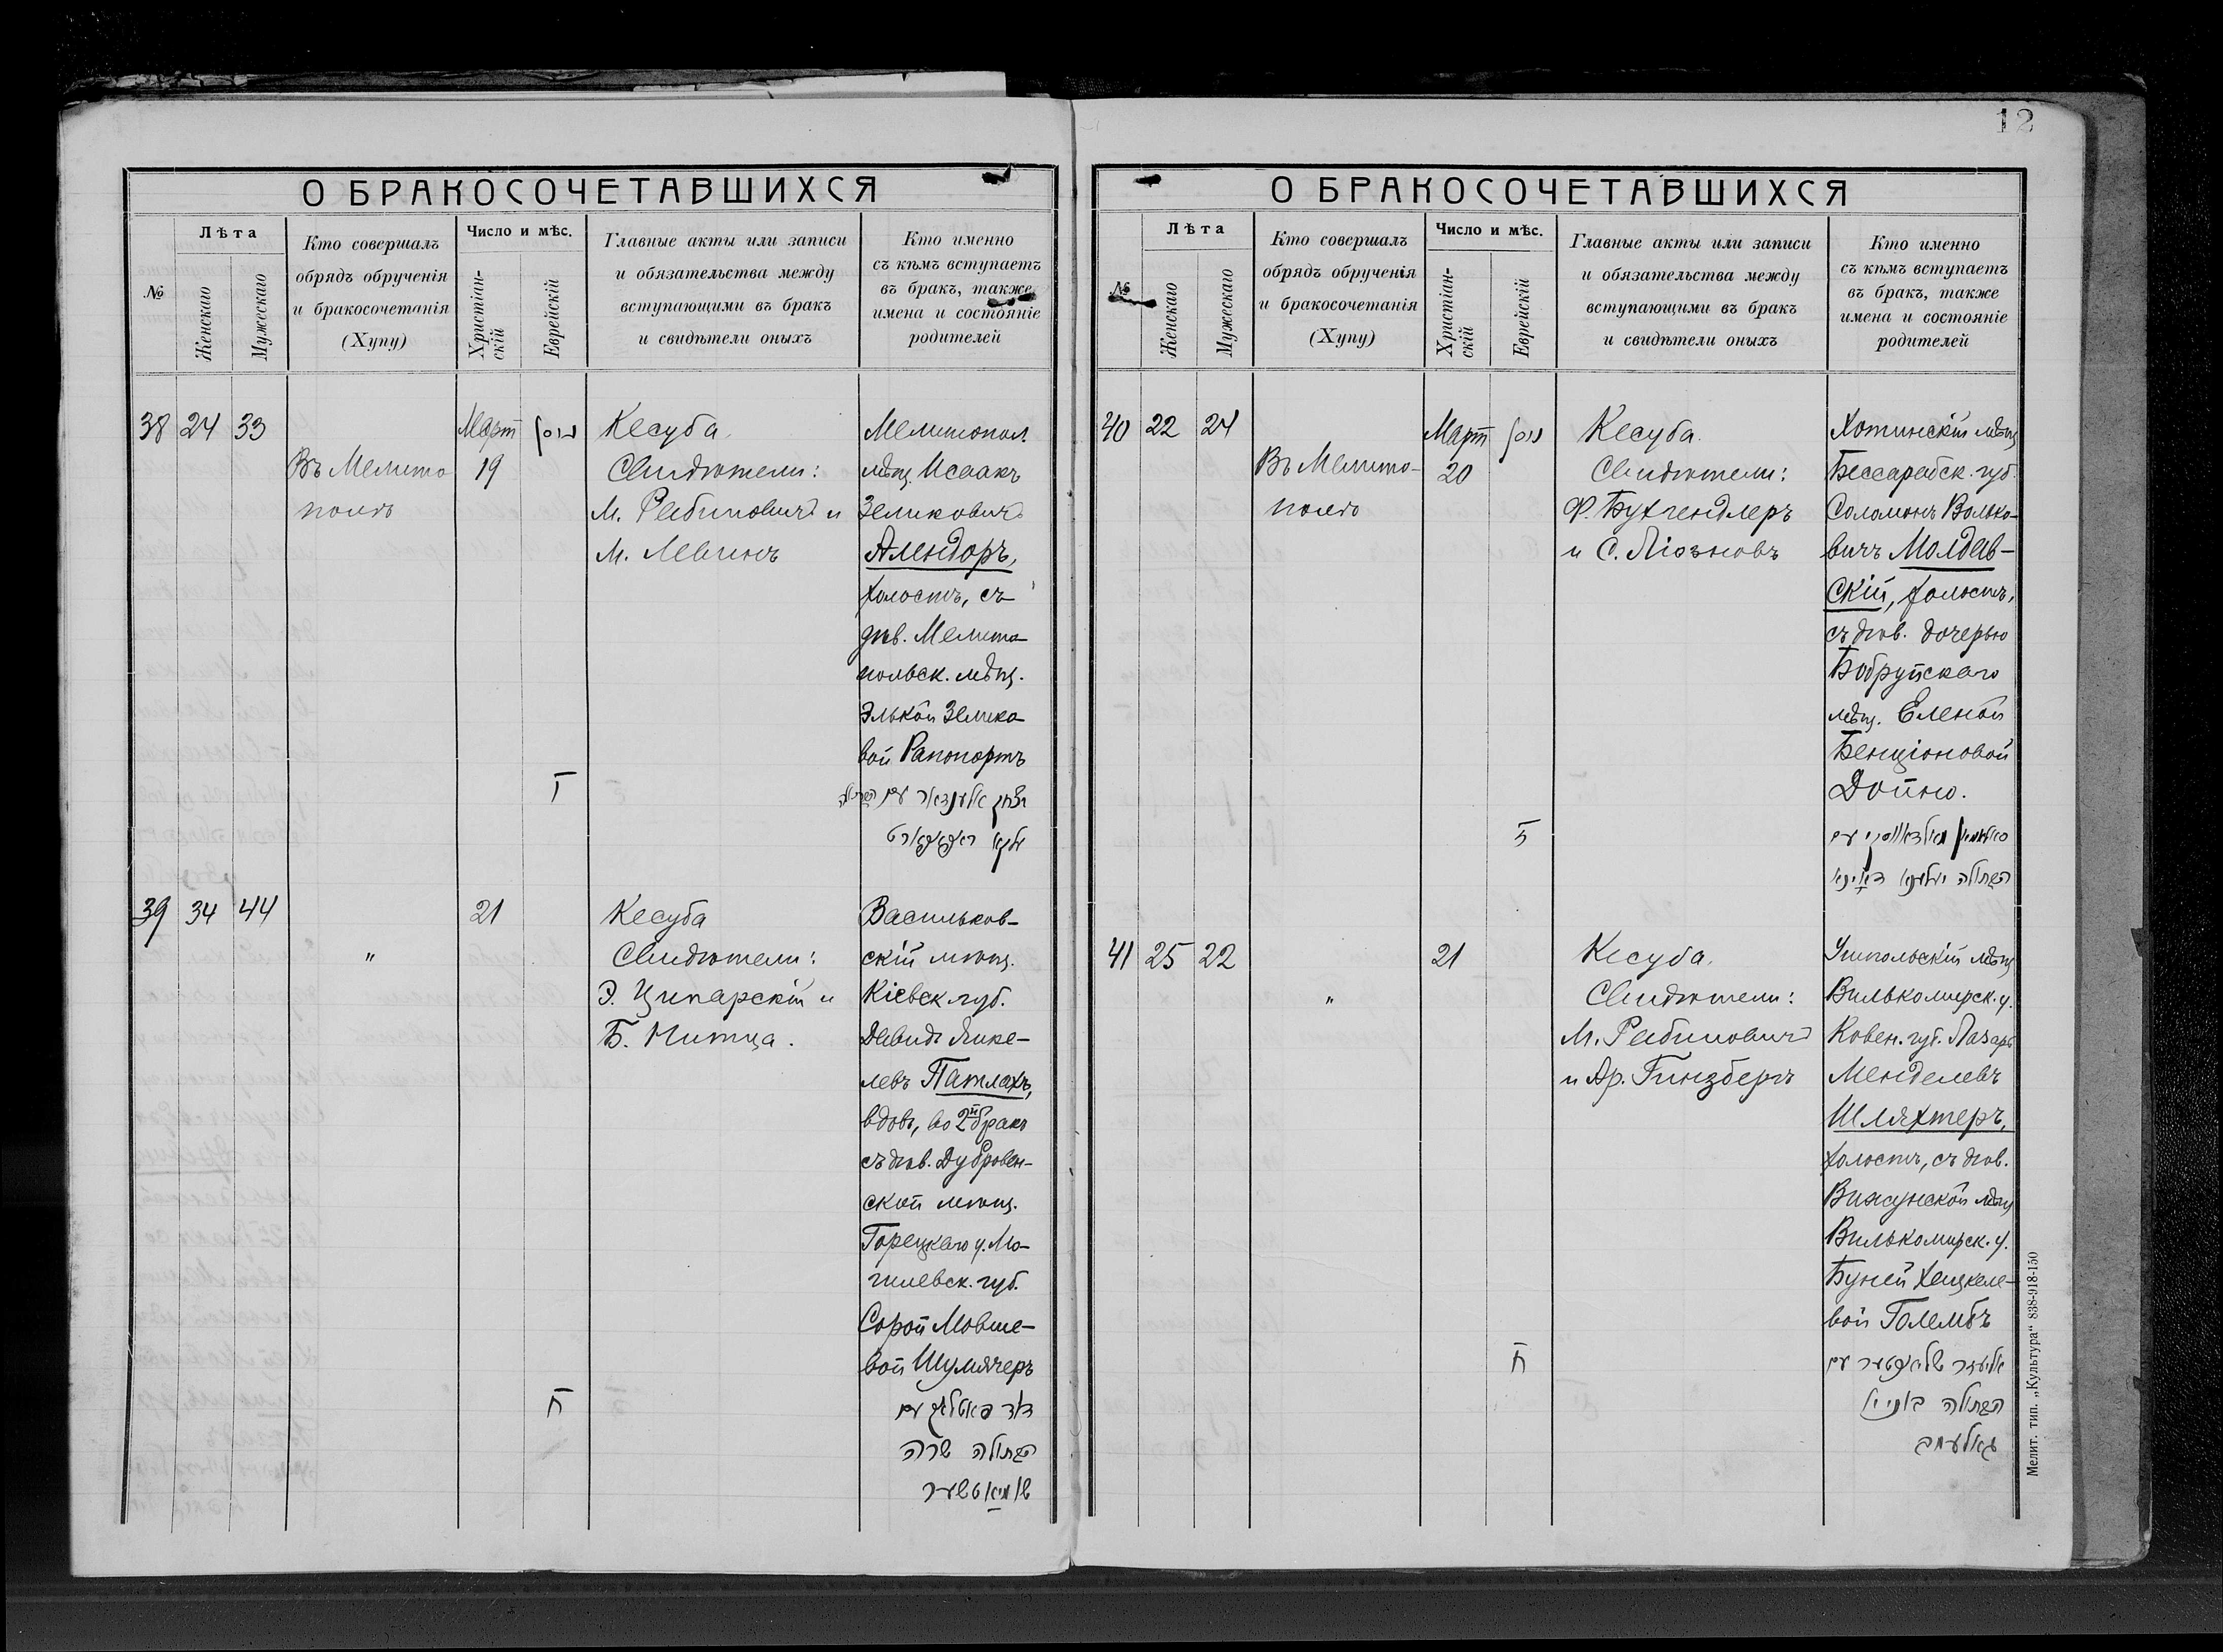 12
О БРАКОСОЧЕТАВШИХСЯ
№
Лѣта
Женскаго
Мужескаго
Кто совершалъ
обрядъ обрученія
и бракосочетанія
(Хупу)
Число и мѣс.
Христіан-
скій
Еврейскій
Главные акты или записи
и обязательства между
вступающими въ бракъ
и свидѣтели оныхъ
Кто именно
съ кѣмъ вступаетъ
въ бракъ, также
имена и состояніе
родителей
38 24 33
Въ Мелито
полѣ
Март
19
ניסן
Кесуба
Свидѣтели:
М. Рабиновичъ и
М. Левинъ
Мелитопол.
мѣщ. Исаакъ
Зеликовичъ
Алендоръ,
холостъ, съ
дѣв. Мелито-
польск. мѣщ.
Элькой Зелико-
вой Рапопортъ
יצחק אלענדאר עם הבתולה
עלקא ראפאפארט
39 34 44
"
21
Кесуба
Свидѣтели:
Э. Ципарскій и
Б. Питца.
Васильков-
скій мѣщ.
Кіевск. губ.
Давидъ Янке-
левъ Патлахъ,
вдовъ, во 2й бракъ
съ дѣв. Дубровен-
ской мѣщ.
Горецкаго у. Мо-
гилевск. губ.
Сорой Мовше-
вой Шумячеръ
ח
דוד פאטלאך עם
הבתולה שרה
שומיאטשער
О БРАКОСОЧЕТАВШИХСЯ
№
Лѣта
Женскаго
Мужескаго
Кто совершалъ
обрядъ обрученія
и бракосочетанія
(Хупу)
Число и мѣс.
Христіан-
скій
Еврейскій
Главные акты или записи
и обязательства между
вступающими въ бракъ
и свидѣтели оныхъ
Кто именно
съ кѣмъ вступаетъ
въ бракъ, также
имена и состояніе
родителей
40 22 24
Въ Мелито-
полѣ
Март
20
ניסן
Кесуба.
Свидѣтели:
Ф. Бухгендлеръ
и С. Ліозновъ
Хотинскій мѣщ.
Бессарабск. губ.
Соломонъ Волько-
вичъ Молдав-
скій, холостъ,
съ дѣв. дочерью
Бобруйскаго
мѣщ. Еленой
Бенціоновой
Дойно.
סאלאמאן מאלדאווסקי עם
הבתולה יעלענא דאינא
41 25 22
"
21
Кесуба.
Свидѣтели:
М. Рабиновичъ
и Ар. Гинзбергъ
Ушпольскій мѣщ.
Вилькомирск. у.
Ковен. губ. Лазарь
Менделевъ
Шляхтеръ,
холостъ, съ дѣв.
Вижунской мѣщ.
Вилькомирск. у.
Буней Хецкеле-
вой Голембъ
ח
אליעזר שליאכטער עם
הבתולה
גאלעמב
Мелит. тип. „Культура“ 838-918-150